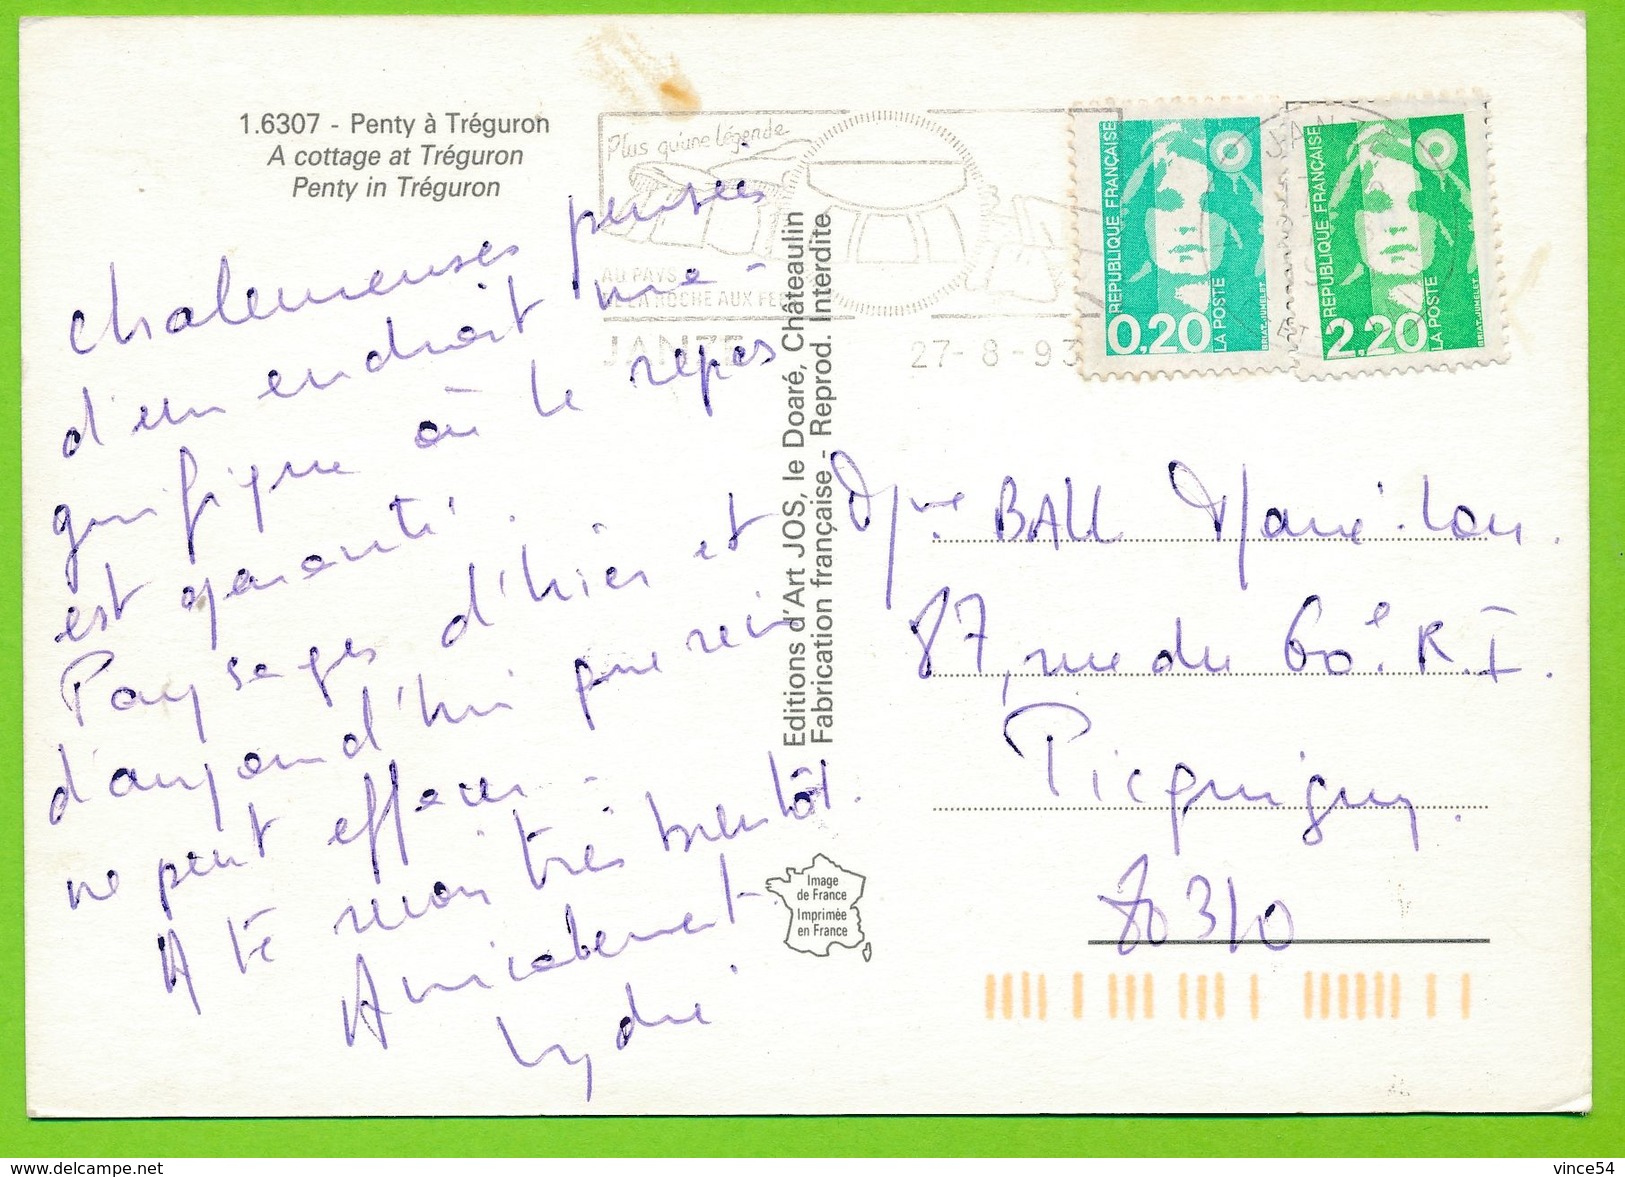 1.6307 - Penty à Tréguron
A cottage at Tréguron
Penty in Tréguron
Chaleureuses pensées
d'un endroit ma-
gnifique où le repos
est garanti.
Paysages d'hier et
d'aujourd'hui que rien
ne peut effacer.
A te revoir très bientôt.
Amicalement.
Lydie.
Editions d'Art JOS, le Doaré, Châteaulin
Fabrication française - Reprod. Interdite
Plus qu'une légende
AU PAYS
DE LA ROCHE AUX FEES
JANZE
27-8-93
REPUBLIQUE FRANÇAISE
0,20
LA POSTE
BRIAT-JUMELET
REPUBLIQUE FRANÇAISE
2,20
LA POSTE
BRIAT-JUMELET
Mme BALL Marie-Lou.
87, rue du 60e R.I.
Picquigny.
80310
Image
de France
Imprimée
en France
delcampe.net
vince54